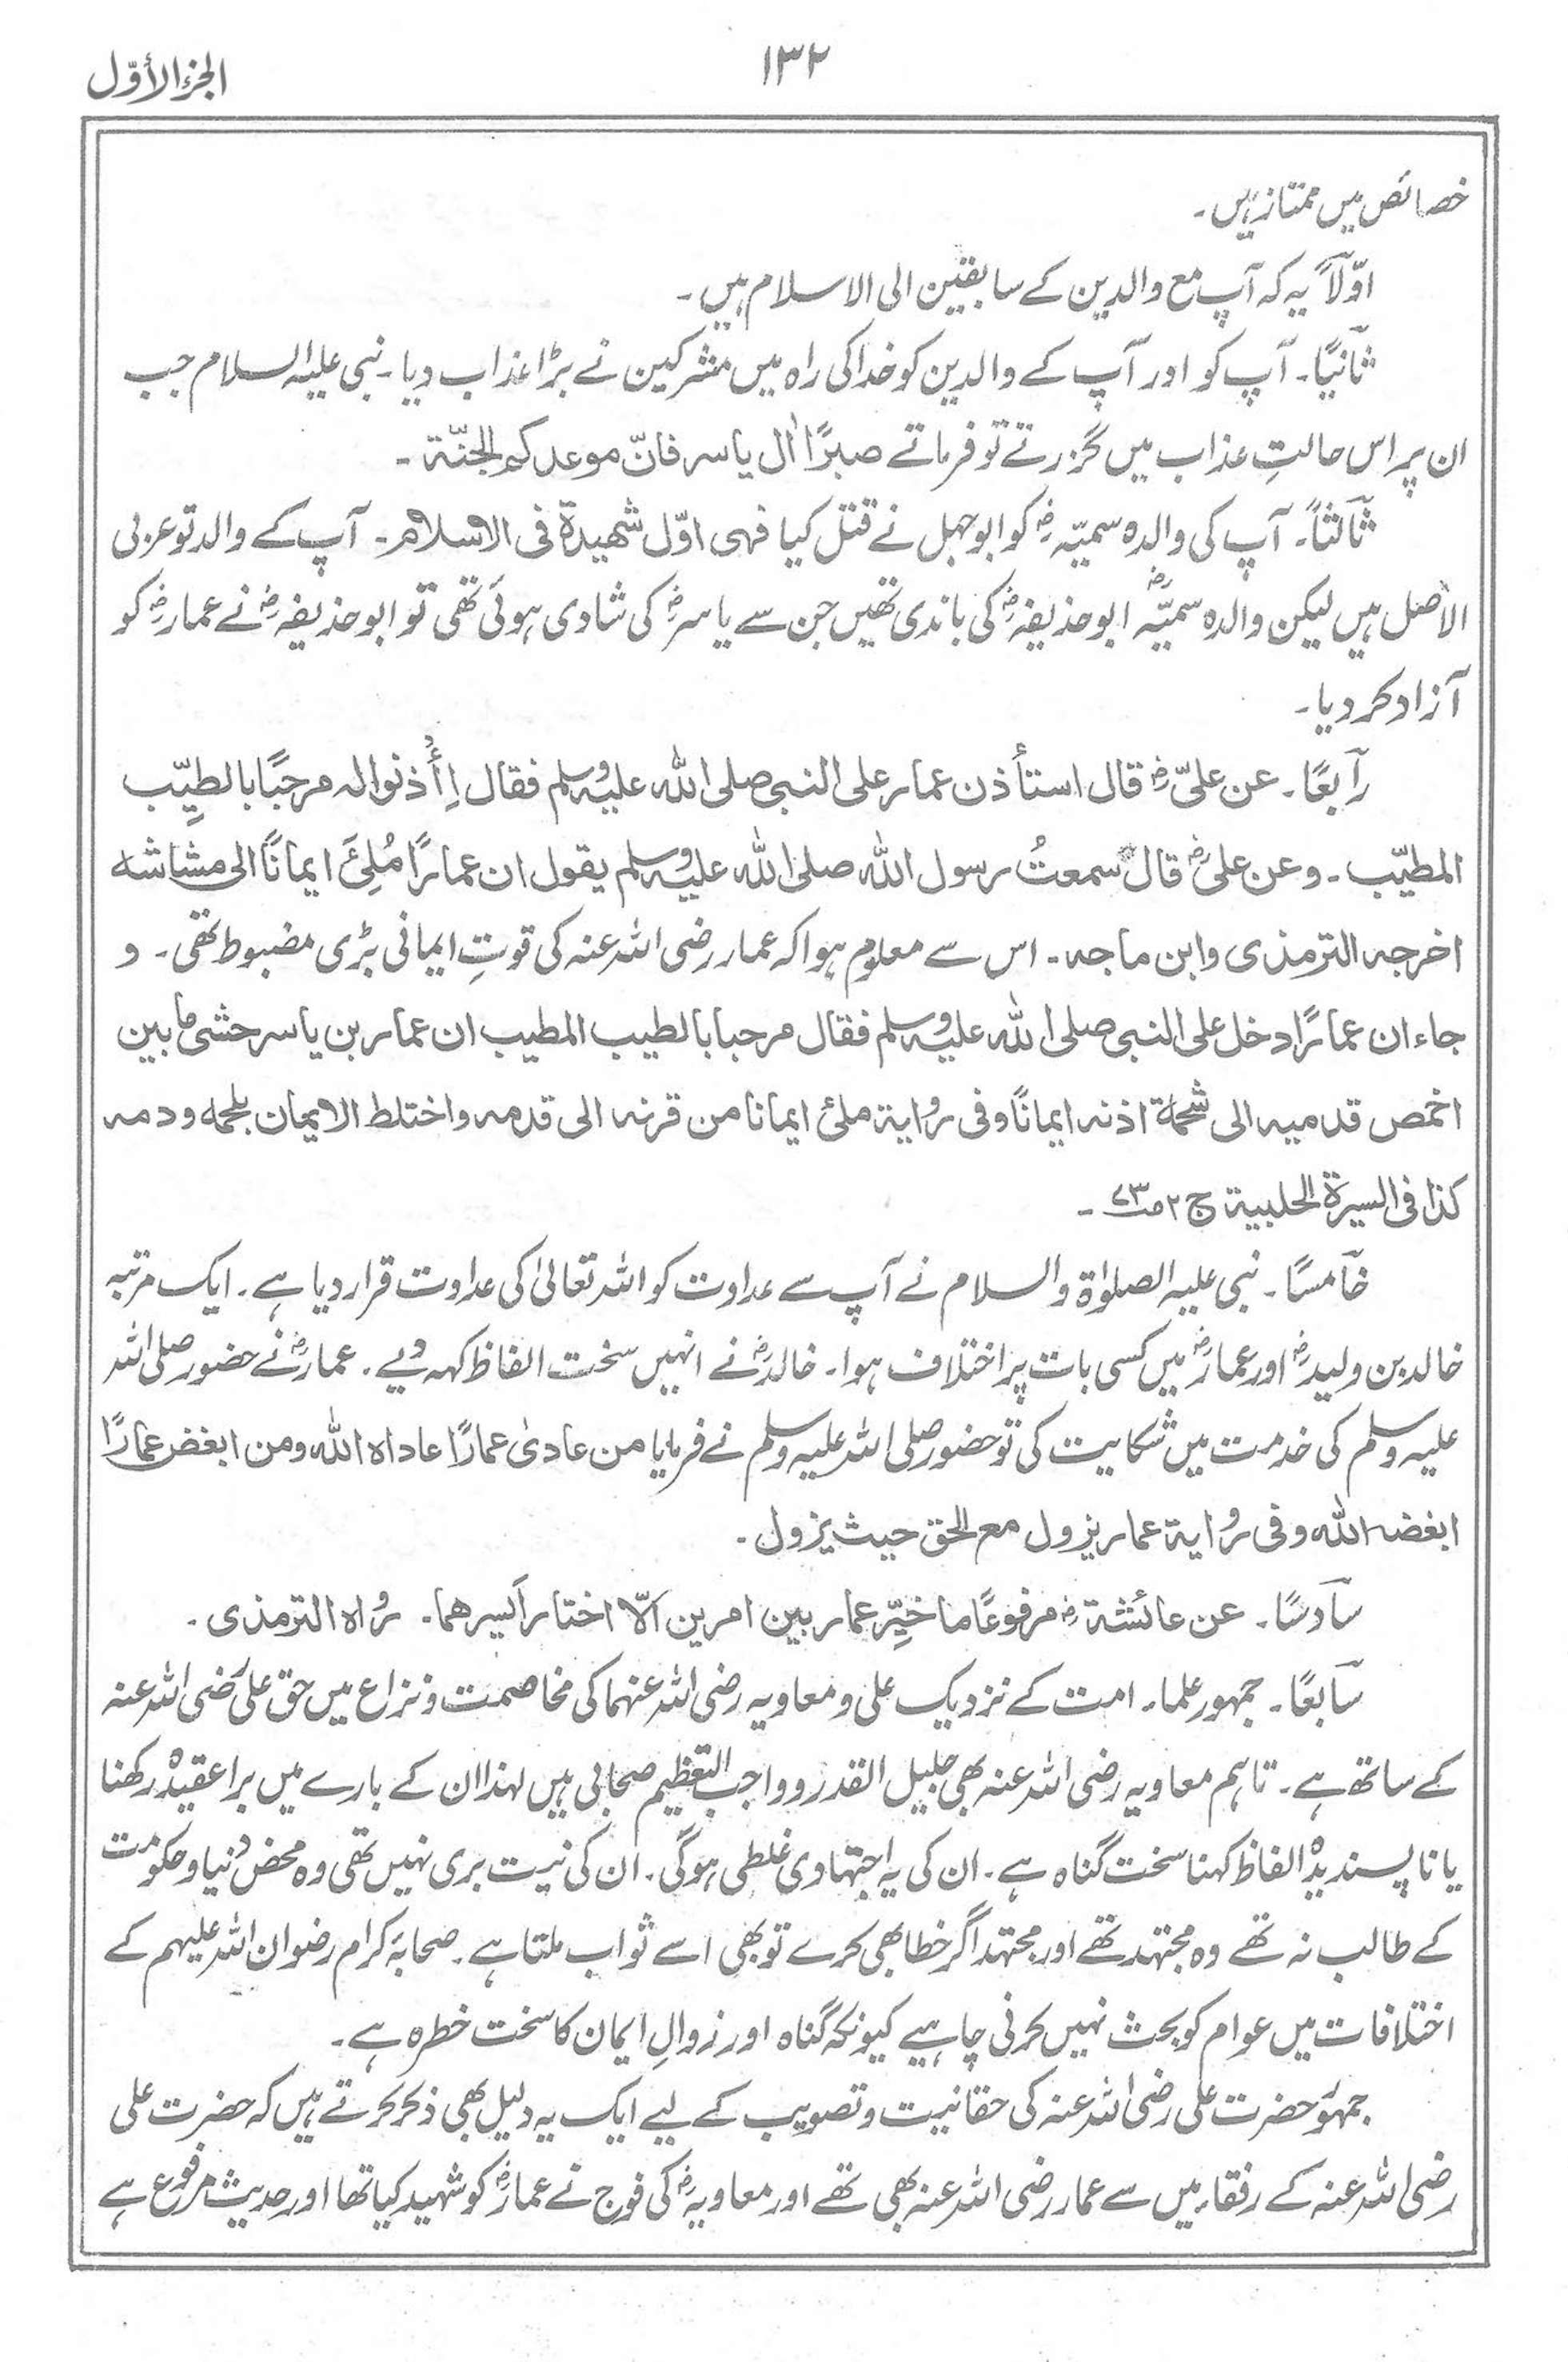 الجزء الأوّل
۱۳۲
خصائص میں ممتاز ہیں۔
اوّلاً یہ کہ آپ مع والدین کے سابقین الی الاسلام ہیں۔
ثانیًا۔ آپ کو اور آپ کے والدین کو خدا کی راہ میں مشرکین نے بڑا عذاب دیا۔ نبی علیہ السلام جب
ان پر اس حالتِ عذاب میں گزرتے تو فرماتے صبرًا اٰل یاسر فانّ موعدکم الجنّة۔
ثالثاً۔ آپ کی والدہ سمیّہ رض کو ابوجہل نے قتل کیا فہی اوّل شہیدة فی الاسلام۔ آپ کے والد تو عربی
الاصل ہیں لیکن والدہ سمیّہ رض ابو حذیفہ رض کی باندی تھیں جن سے یاسر رض کی شادی ہوئی تھی تو ابو حذیفہ رض نے عمار رض کو
آزاد کر دیا۔
رابعًا۔ عن علیّ رض قال استأذن عمار علی النبی صلی اللہ علیہ وسلم فقال اِأْذنوا لہ مرحبًا بالطیِّب
المطیّب۔ وعن علی رض قال سمعتُ رسول اللہ صلی اللہ علیہ وسلم یقول ان عمارًا مُلِئَ ایمانًا الی مشاشہ
اخرجہ الترمذی وابن ماجہ۔ اس سے معلوم ہوا کہ عمار رضی اللہ عنہ کی قوتِ ایمانی بڑی مضبوط تھی۔ و
جاء ان عمارًا دخل علی النبی صلی اللہ علیہ وسلم فقال مرحبا بالطیب المطیب ان عمار بن یاسر حشی ما بین
اخمص قدمیہ الی شحمة اذنہ ایمانًا وفی روایة ملئ ایمانا من قرنہ الی قدمہ واختلط الایمان بلحمہ ودمہ
کذا فی السیرة الحلبیة ج ۲ ص۷۳۔
خامسًا۔ نبی علیہ الصلوٰة والسلام نے آپ سے عداوت کو اللہ تعالیٰ کی عداوت قرار دیا ہے۔ ایک مرتبہ
خالد بن ولید رض اور عمار رض میں کسی بات پر اختلاف ہوا۔ خالد رض نے انہیں سخت الفاظ کہہ دیے۔ عمار رض نے حضور صلی اللہ
علیہ وسلم کی خدمت میں شکایت کی تو حضور صلی اللہ علیہ وسلم نے فرمایا من عادیٰ عمارًا عاداہ اللہ ومن ابغض عمارًا
ابغضہ اللہ وفی روایة عمار یزول مع الحق حیث یزول۔
سادسًا۔ عن عائشة رض مرفوعًا ما خیِّر عمار بین امرین اَلّا اختار اَیسرھما۔ رواہ الترمذی۔
سابعًا۔ جمہور علماء امت کے نزدیک علی و معاویہ رضی اللہ عنہما کی مخاصمت و نزاع میں حق علی رضی اللہ عنہ
کے ساتھ ہے۔ تاہم معاویہ رضی اللہ عنہ بھی جلیل القدر و واجب التعظیم صحابی ہیں لہذا ان کے بارے میں برا عقیدہ رکھنا
یا ناپسندیدہ الفاظ کہنا سخت گناہ ہے۔ ان کی یہ اجتہادی غلطی ہوگی۔ ان کی نیت بری نہیں تھی وہ محض دنیا و حکومت
کے طالب نہ تھے وہ مجتہد تھے اور مجتہد اگر خطا بھی کرے تو بھی اسے ثواب ملتا ہے۔ صحابۂ کرام رضوان اللہ علیہم کے
اختلافات میں عوام کو بحث نہیں کرنی چاہیے کیونکہ گناہ اور زوالِ ایمان کا سخت خطرہ ہے۔
جمہور حضرت علی رضی اللہ عنہ کی حقانیت و تصویب کے لیے ایک یہ دلیل بھی ذکر کرتے ہیں کہ حضرت علی
رضی اللہ عنہ کے رفقاء میں سے عمار رضی اللہ عنہ بھی تھے اور معاویہ رض کی فوج نے عمار رض کو شہید کیا تھا اور حدیث مرفوع ہے